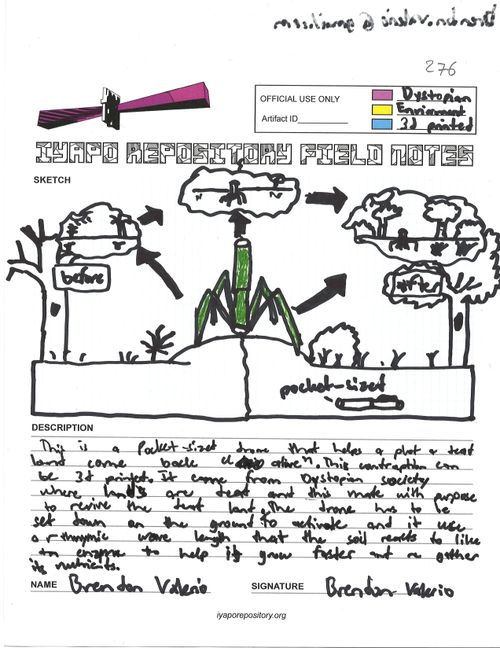 276
OFFICIAL USE ONLY
Artifact ID
Dystopian
Enviroment
3d printed
IYAPO REPOSITORY FIELD NOTES
SKETCH
before
after
pocket-sized
DESCRIPTION
This is a Pocket-sized drone that helps a plot a dead
land come back "alive". This contraption can
be 3d printed. It came from Dystopian society
where lands are dead and this made with purpose
to revive the dead land. The drone has to be
set down on the ground to activate and it use
a rthymic wave length that the soil reacts to like
an enzyme to help it grow faster and re gather
its nutrients.
NAME Brendon Valerio SIGNATURE Brendon Valerio
iyaporepository.org